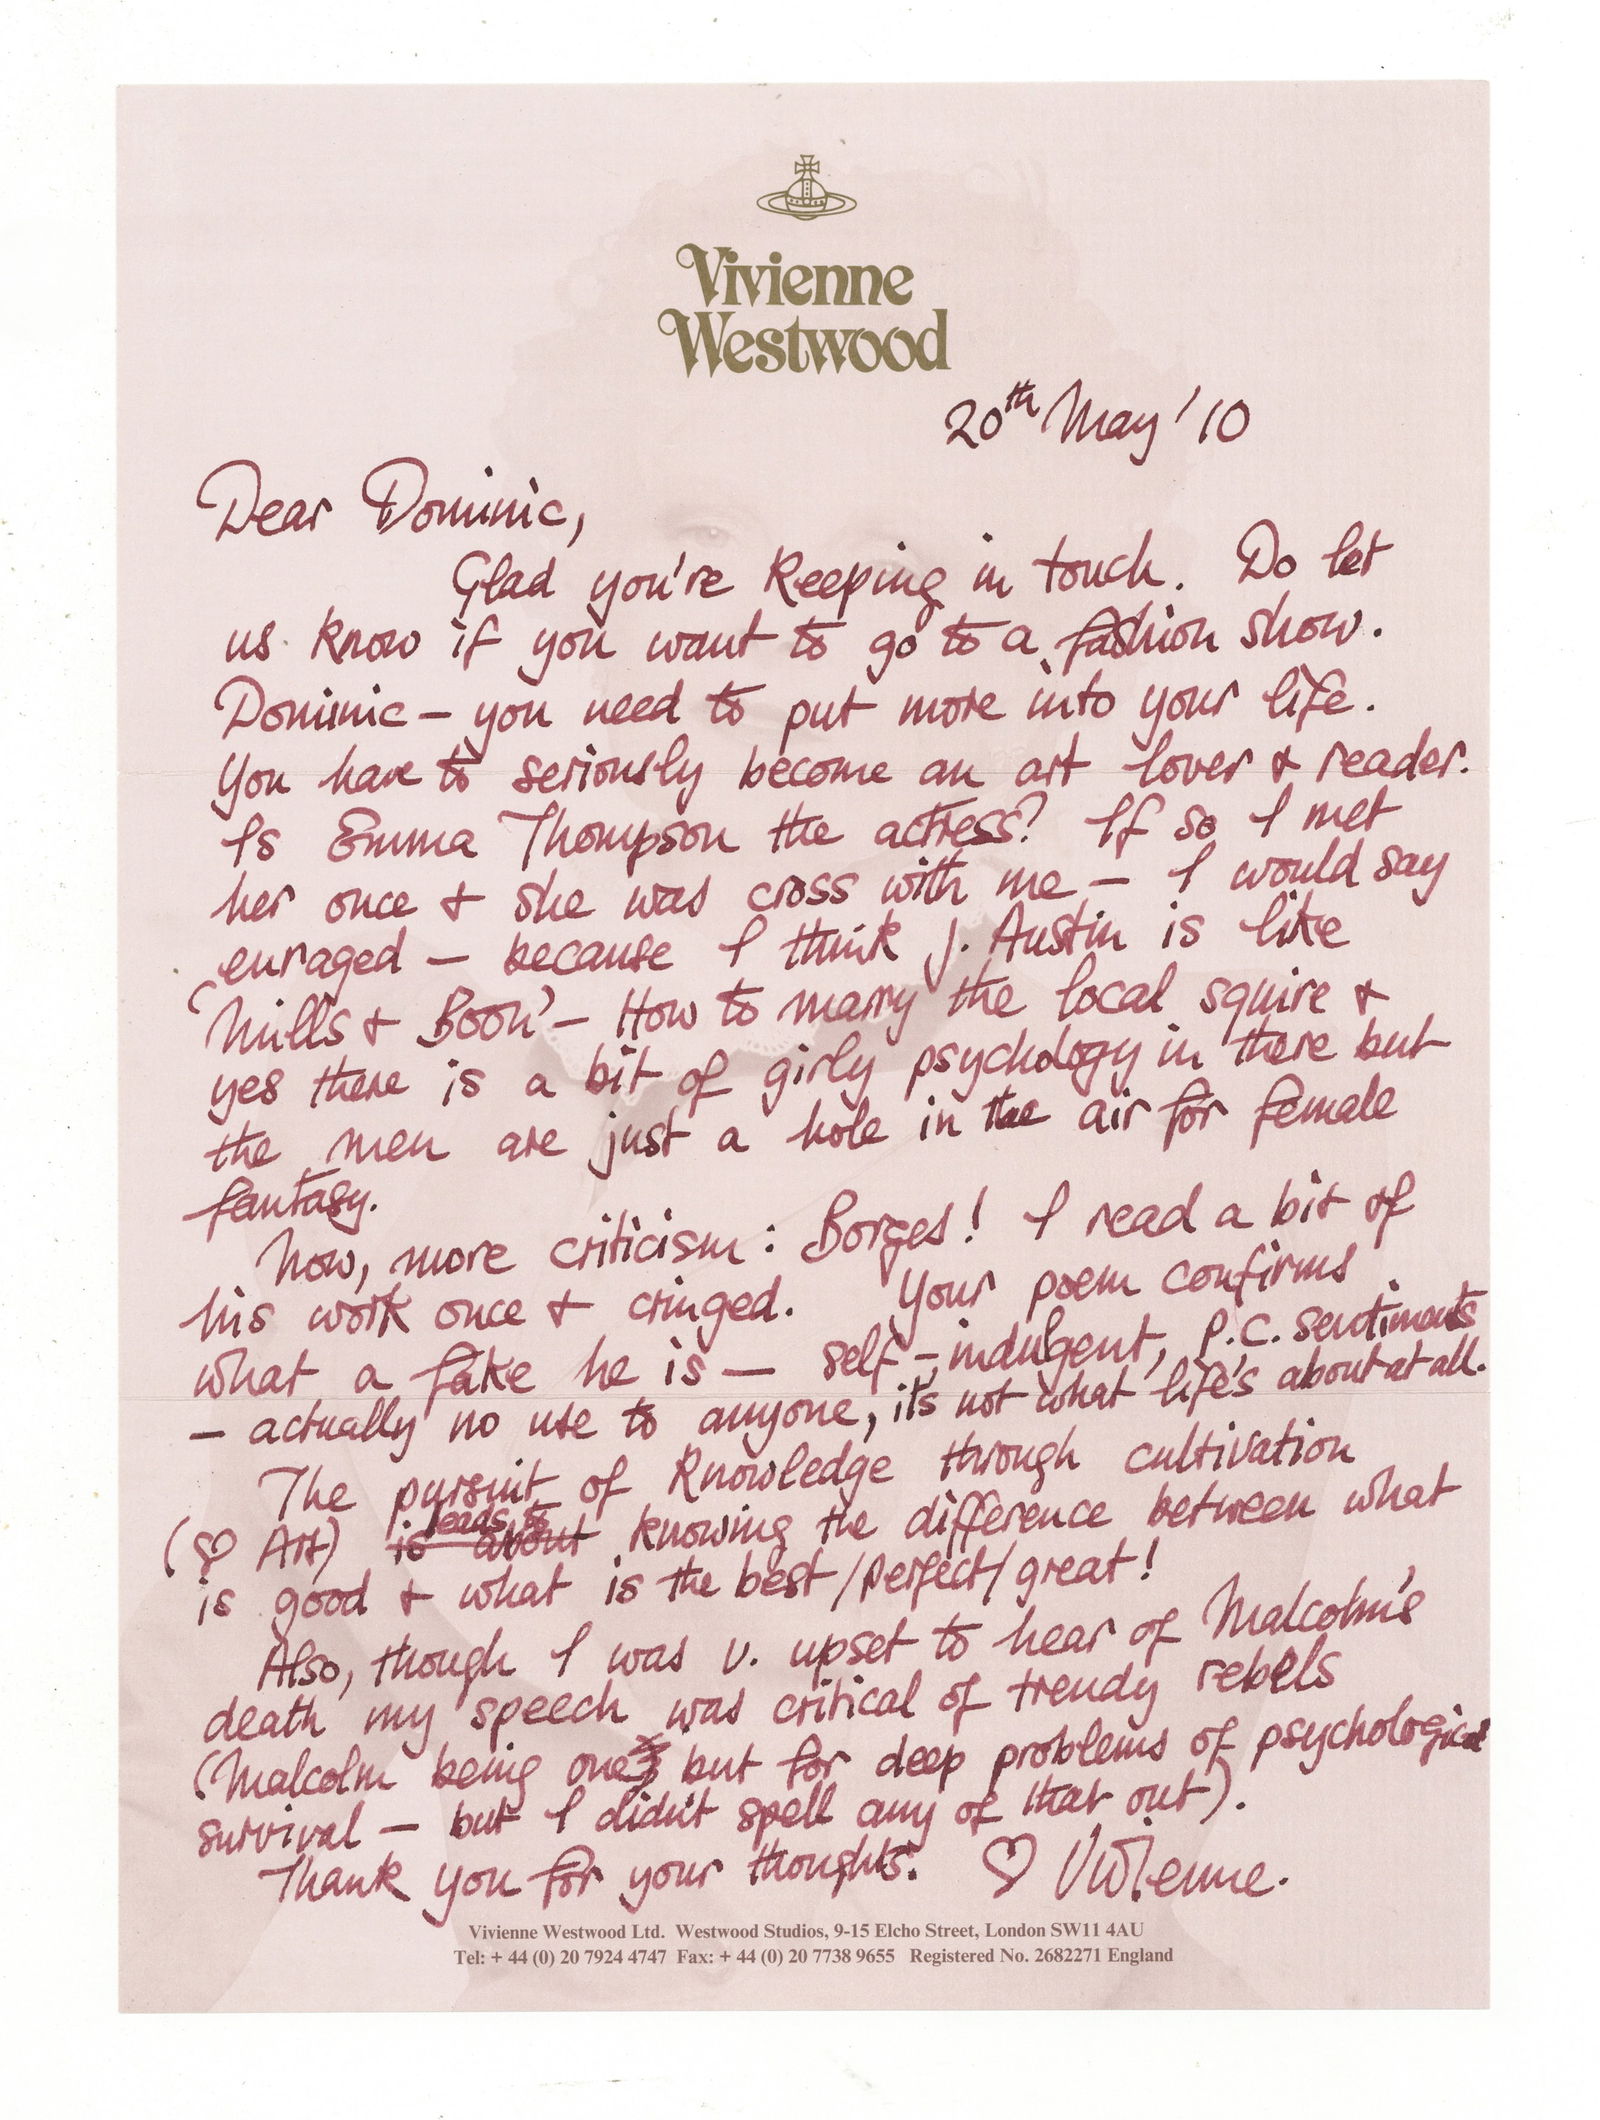 Vivienne
Westwood
20th May '10
Dear Dominic,
Glad you're keeping in touch. Do let
us know if you want to go to a fashion show.
Dominic – you need to put more into your life.
You have to seriously become an art lover & reader.
Is Emma Thompson the actress? If so I met
her once & she was cross with me – I would say
enraged – because I think J. Austin is like
'Mills & Boon' – How to marry the local squire &
yes there is a bit of girly psychology in there but
the men are just a hole in the air for female
fantasy.
Now, more criticism: Borges! I read a bit of
his work once & cringed. Your poem confirms
what a fake he is – self-indulgent, P.C. sentiments
– actually no use to anyone, it's not what life's about at all.
The pursuit of knowledge through cultivation
leads to
(♡ Art) is about knowing the difference between what
is good & what is the best/perfect/great!
Also, though I was v. upset to hear of Malcolm's
death my speech was critical of trendy rebels
(Malcolm being one but for deep problems of psychological
survival – but I didn't spell any of that out).
Thank you for your thoughts. ♡ Vivienne.
Vivienne Westwood Ltd. Westwood Studios, 9-15 Elcho Street, London SW11 4AU
Tel: + 44 (0) 20 7924 4747 Fax: + 44 (0) 20 7738 9655 Registered No. 2682271 England